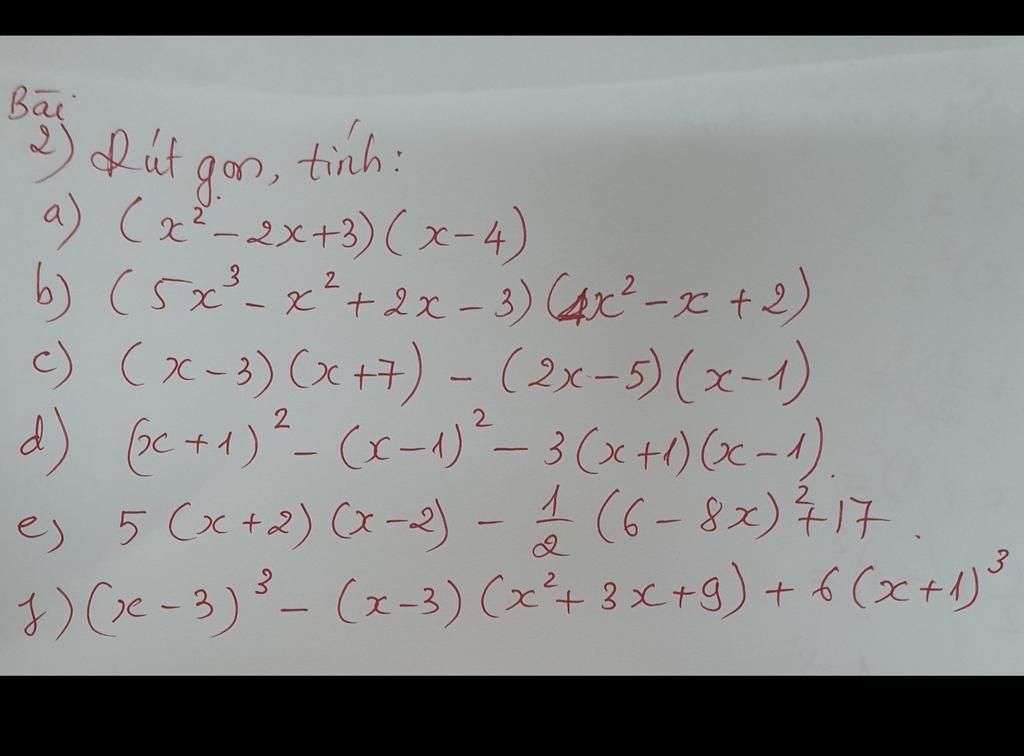 Bài
2) Rút gọn, tính:
a) (x² - 2x + 3)(x - 4)
b) (5x³ - x² + 2x - 3)(4x² - x + 2)
c) (x - 3)(x + 7) - (2x - 5)(x - 1)
d) (x + 1)² - (x - 1)² - 3(x + 1)(x - 1).
e) 5(x + 2)(x - 2) - 1/2 (6 - 8x)² + 17.
f) (x - 3)³ - (x - 3)(x² + 3x + 9) + 6(x + 1)³